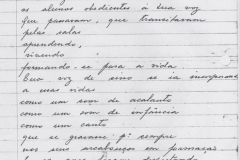 os alunos obedientes à sua voz
Que passaram, que transitaram
pelas salas
aprendendo,
vivendo
formando-se para a vida
Essa voz de sino se ia incorporando
a suas vidas
como um som de acalanto
como um som de infância
como um canto
que se gravava pª sempre
nos seus arcabouços em